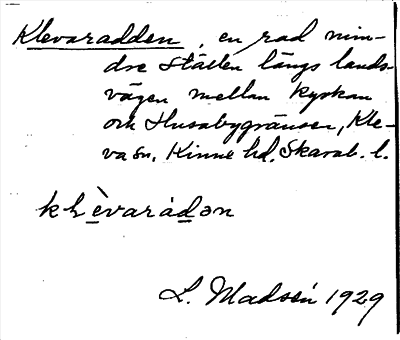 Klevaradden, en rad min-
dre ställen längs lands-
vägen mellan kyrkan
och Husabygränsen, Kle-
va sn, Kinne hd, Skarab. l.
L. Madsén 1929